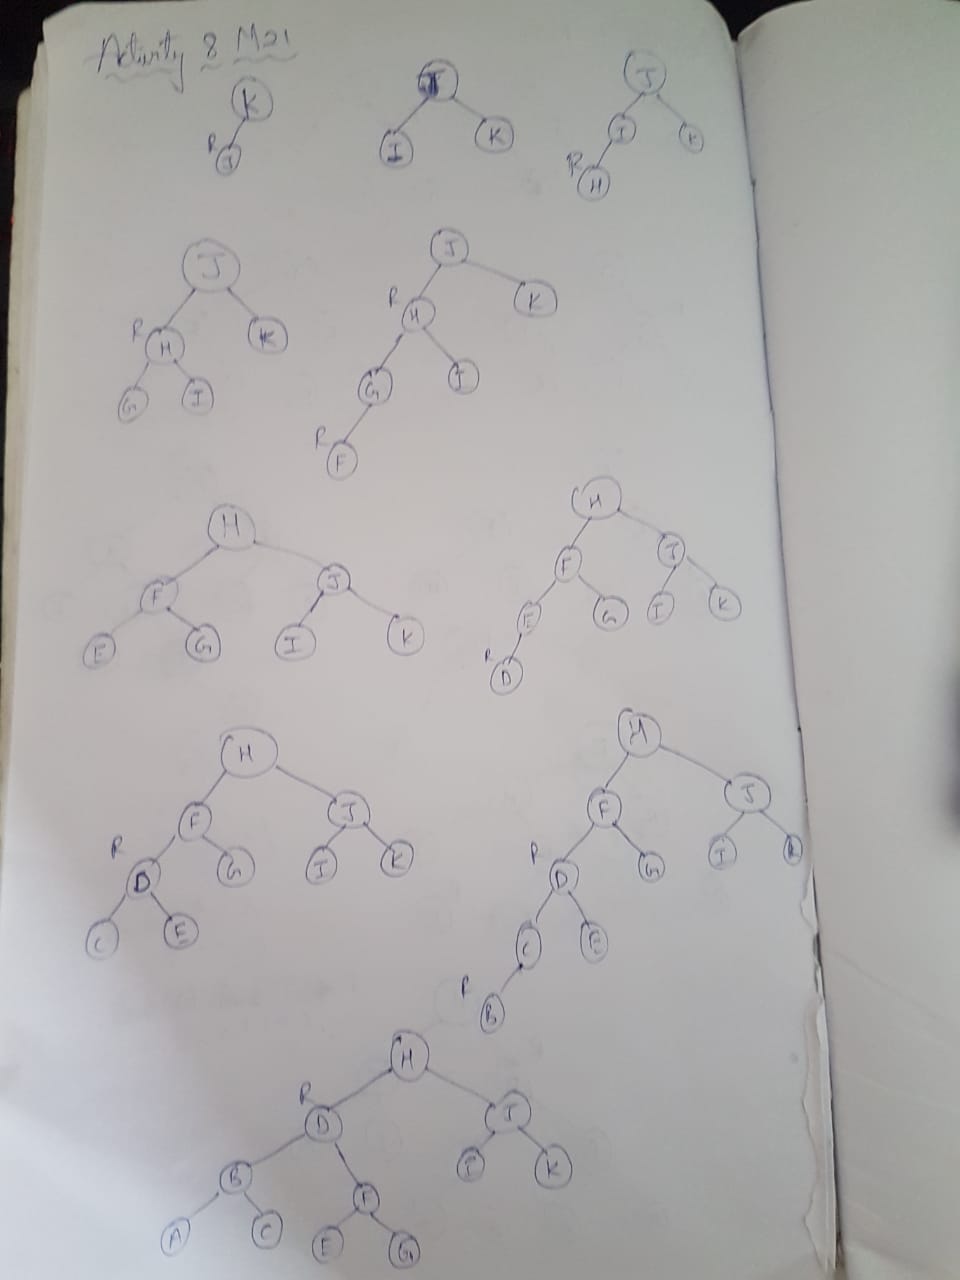 Activity 8 M21
K
R J
J
I K
J
I K
R H
J
R H K
G I
J
R H K
G I
R F
H
F J
E G I K
H
F J
E G I K
R D
H
F J
R D G I K
C E
H
F J
R D G I K
C E
R B
H
R D J
B F I K
A C E G